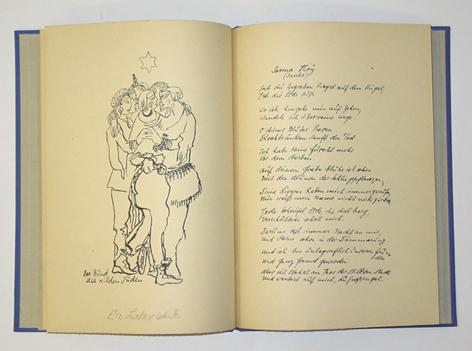 Der Bund
der wilden Juden
Senna Hoy
(Sascha)
Seit du begraben liegst auf dem Hügel,
Ist die Erde süß.
Wo ich hingehe nun auf Zehen,
Wandele ich über reine Wege.
O deines Blutes Rosen
Durchtränken sanft den Tod.
Ich habe keine Furcht mehr
Vor dem Sterben.
Auf deinem Grabe blühe ich schon
Mit den Blumen der Schlingpflanzen.
Deine Lippen haben mich immer gerufen,
Nun weiß mein Name nicht mehr zurück.
Jede Schaufel Erde, die dich barg,
Verschüttete auch mich.
Darum ist immer Nacht an mir,
Und Sterne schon in der Dämmerung.
Und ich bin unbegreiflich unseren Freunden
Und ganz fremd geworden
Aber du stehst am Tor der stillsten Stadt
Und wartest auf mich, du Großengel.